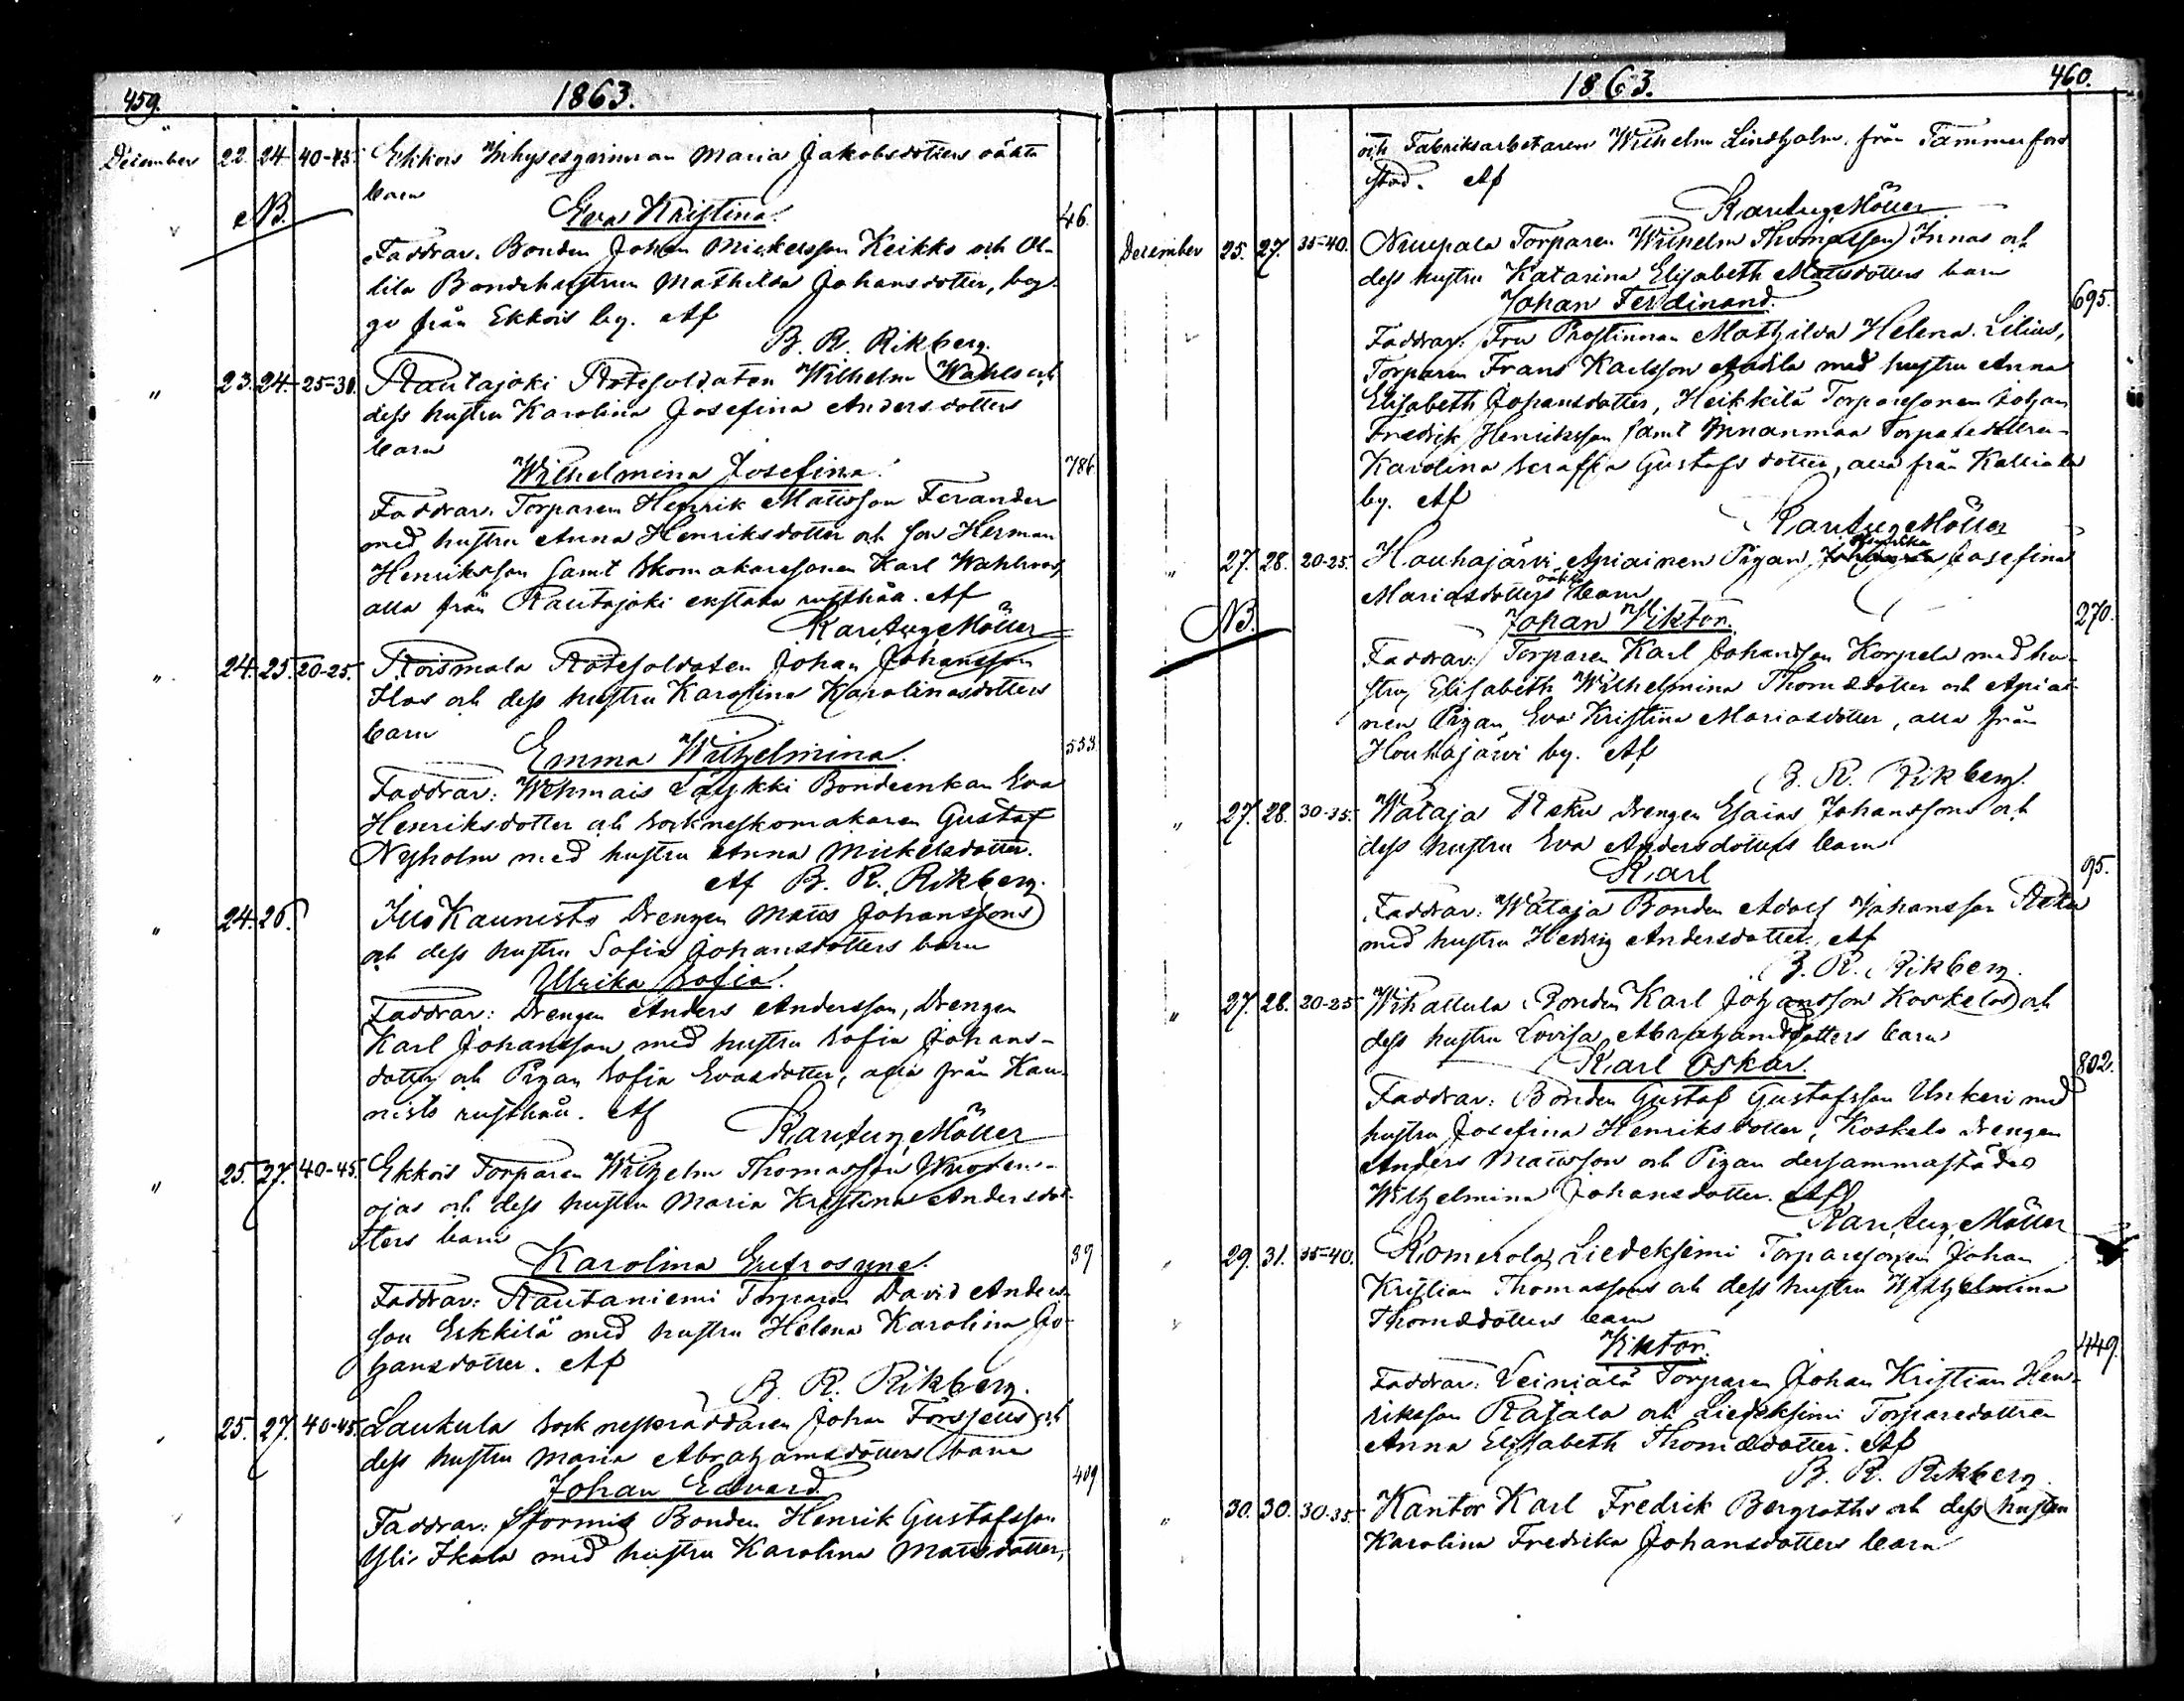 459.
1863.
December 22. 24. 40-45. Ekkois Inhysesqvinnan Maria Jakobsdotters oäkta
barn
NB. Eva Kristina. 46.
Faddrar. Bonden Johan Mickelsson Keikko och Ol-
lila Bondehustrun Mathilda Johansdotter, beg-
ge från Ekkois by. Af
B. R. Rikberg.
" 23. 24. 25-30. Rautajoki Rotesoldaten Wilhelm Wahls och
dess hustru Karolina Josefina Andersdotters
barn
Wilhelmina Josefina. 786.
Faddrar. Torparen Henrik Matsson Ferander
med hustru Anna Henriksdotter och son Herman
Henriksson samt Skomakaresonen Karl Wahlroos,
alla från Rautajoki rusthåll. Af
Karl Aug Möller
" 24. 25. 20-25. Roismala Rotesoldaten Johan Johansson
Ilos och dess hustru Karolina Karolinasdotters
barn
Emma Wilhelmina. 553.
Faddrar: Wehmais Laukki Bondeenkan Eva
Henriksdotter och Sockneskomakaren Gustaf
Nyholm med hustru Anna Mickelsdotter.
Af B. R. Rikberg.
" 24. 26. Kaunisto Drengen Mats Johanssons
och dess hustru Sofia Johansdotters barn
Ulrika Sofia.
Faddrar: Drengen Anders Andersson, Drengen
Karl Johansson med hustru Sofia Johans-
dotter och Pigan Sofia Evasdotter, alla från Kau-
nisto rusthåll. Af
Karl Aug. Möller
" 25. 27. 40-45. Ekkois Torparen Wilhelm Thomasson
ojas och dess hustru Maria Kristina Andersdot-
ters barn
Karolina Eufrosyne. 39
Faddrar: Rautaniemi Torparen David Anders-
son Erkkilä med hustru Helena Karolina Jo-
hansdotter. Af
B. R. Rikberg.
" 25. 27. 40-45. Laukula Sockneskräddaren Johan Forssells och
dess hustru Maria Abrahamsdotters barn
Johan Edvard. 409
Faddrar: Stormis Bonden Henrik Gustafsson
Yli-Ikala med hustru Karolina Matsdotter,
1863.
460.
och Fabriksarbetaren Wilhelm Lindholm från Tammerfors
stad. Af
Karl Aug Möller
December 25. 27. 35-40. Nuupala Torparen Wilhelm Thomasson Innas och
dess hustru Katarina Elisabeth Matsdotters barn
Johan Ferdinand. 695.
Faddrar: Fru Prostinnan Mathilda Helena Lilius,
Torparen Frans Karlsson Andila med hustru Anna
Elisabeth Johansdotter, Heikkilä Torparesonen Johan
Fredrik Henriksson samt Innanmaa Torparedottren
Karolina Seraffia Gustafsdotter, alla från Kalliala
by. Af
Karl Aug Möller
" 27. 28. 20-25. Houhajärvi Apiainen Pigan Josefina
Mariasdotters oäkta barn
NB. Johan Viktor. 270.
Faddrar: Torparen Karl Johansson Korpela med hu-
stru Elisabeth Wilhelmina Thomædotter och Apiai-
nen Pigan Eva Kristina Mariasdotter, alla från
Houhajärvi by. Af
B. R. Rikberg.
" 27. 28. 30-35. Wataja Reku Drengen Esaias Johanssons och
dess hustru Eva Andersdotters barn
Karl 95.
Faddrar: Wataja Bonden Adolf Johansson Reku
med hustru Hedvig Andersdotter. Af
B. R. Rikberg.
" 27. 28. 20-25 Wihattula Bonden Karl Johansson Koskelos och
dess hustru Lovisa Abrahamsdotters barn
Karl Oskar. 802.
Faddrar: Bonden Gustaf Gustafsson Unkeri med
hustru Josefina Henriksdotter, Koskelo Drengen
Anders Matsson och Pigan dersammastädes
Wilhelmina Johansdotter. Af
Karl Aug. Möller
" 29. 31. 35-40. Komerola Liedeksimi Torparesonen Johan
Kristian Thomassons och dess hustru Wilhelmina
Thomædotters barn
Viktor. 449.
Faddrar: Leiniälä Torparen Johan Kristian Hen-
riksson Rajala och Liedeksimi Torparedottren
Anna Elisabeth Thomædotter. Af
B. R. Rikberg.
" 30. 30. 30-35. Kantor Karl Fredrik Bergroths och dess hustru
Karolina Fredrika Johansdotters barn